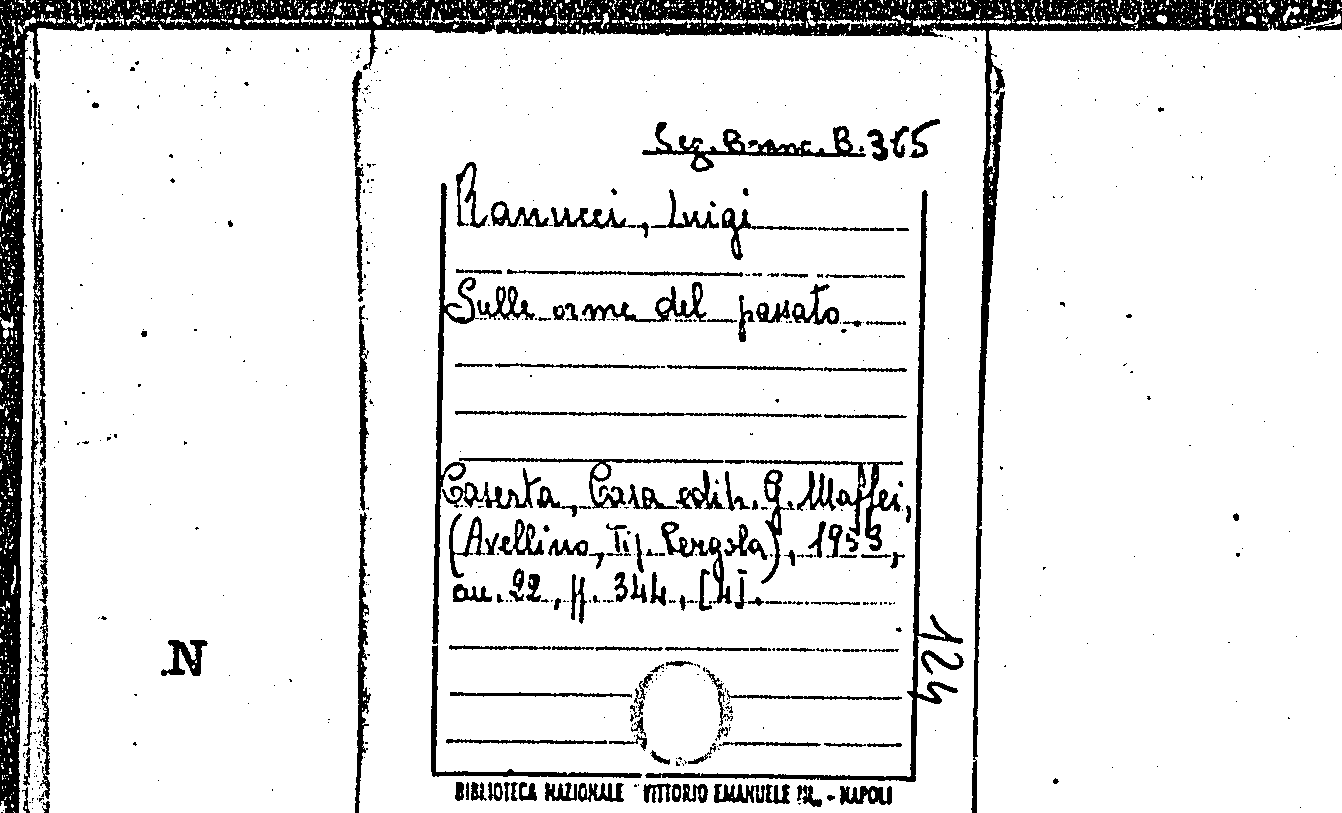 Sez. Branc. B. 365
Ranucci, Luigi
Sulle orme del passato.
Caserta, Casa edit. G. Maffei,
(Avellino, Tip. Pergola), 1953,
au. 22, pp. 344, [4].
124
N
BIBLIOTECA NAZIONALE VITTORIO EMANUELE III - NAPOLI